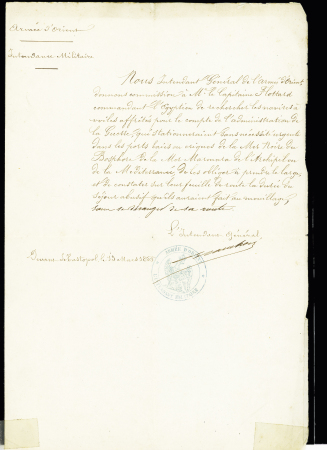 Armée d'Orient
Intendance Militaire
Nous Intendant Général de l'armée d'Orient
donnons commission à Mr le Capitaine Hottard
commandant l'Egyptien de rechercher les navires à
voiles affrétés pour le compte de l'administration de
la Guerre, qui stationneraient sans nécessité urgente
dans les ports, baies ou criques de la Mer Noire du
Bosphore de la Mer Marmara de l'Archipel ou
de la Méditerranée de les obliger à prendre le large,
et de constater sur leur feuille de route la durée du
séjour abusif qu'ils auraient fait au mouillage,
sans se déranger de sa route
L'Intendant Général,
Devant Sébastopol, le 13 Mars 1855